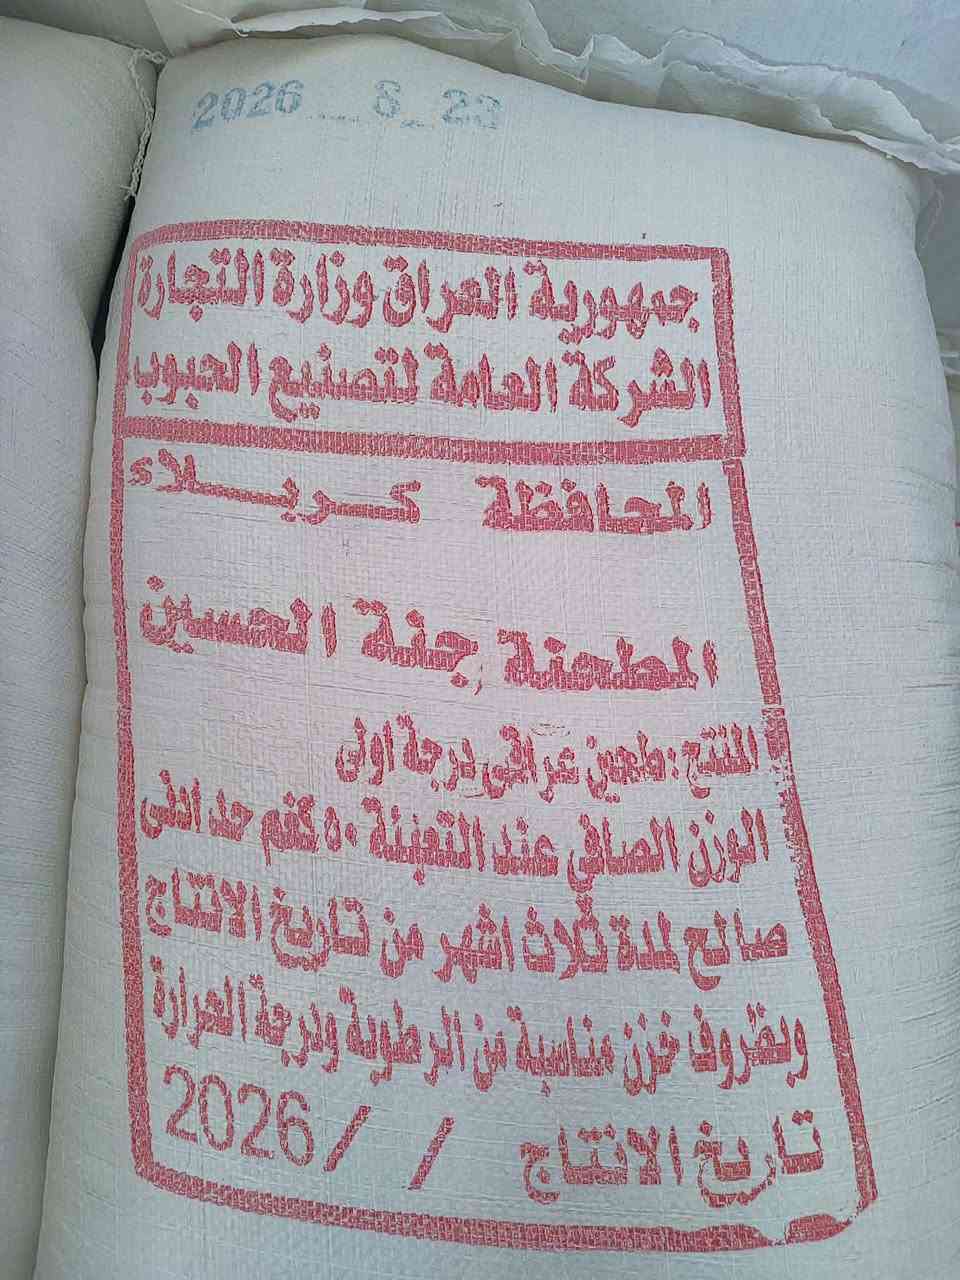 2026 8 23
جمهورية العراق وزارة التجارة
الشركة العامة لتصنيع الحبوب
المحافظة كربلاء
المطحنة جنة الحسين
المنتج : طحين عراقي درجة اولى
الوزن الصافي عند التعبئة ٥٠ كغم حد ادنى
صالح لمدة ثلاث اشهر من تاريخ الانتاج
وبظروف خزن مناسبة من الرطوبة ودرجة الحرارة
تاريخ الانتاج / / 2026